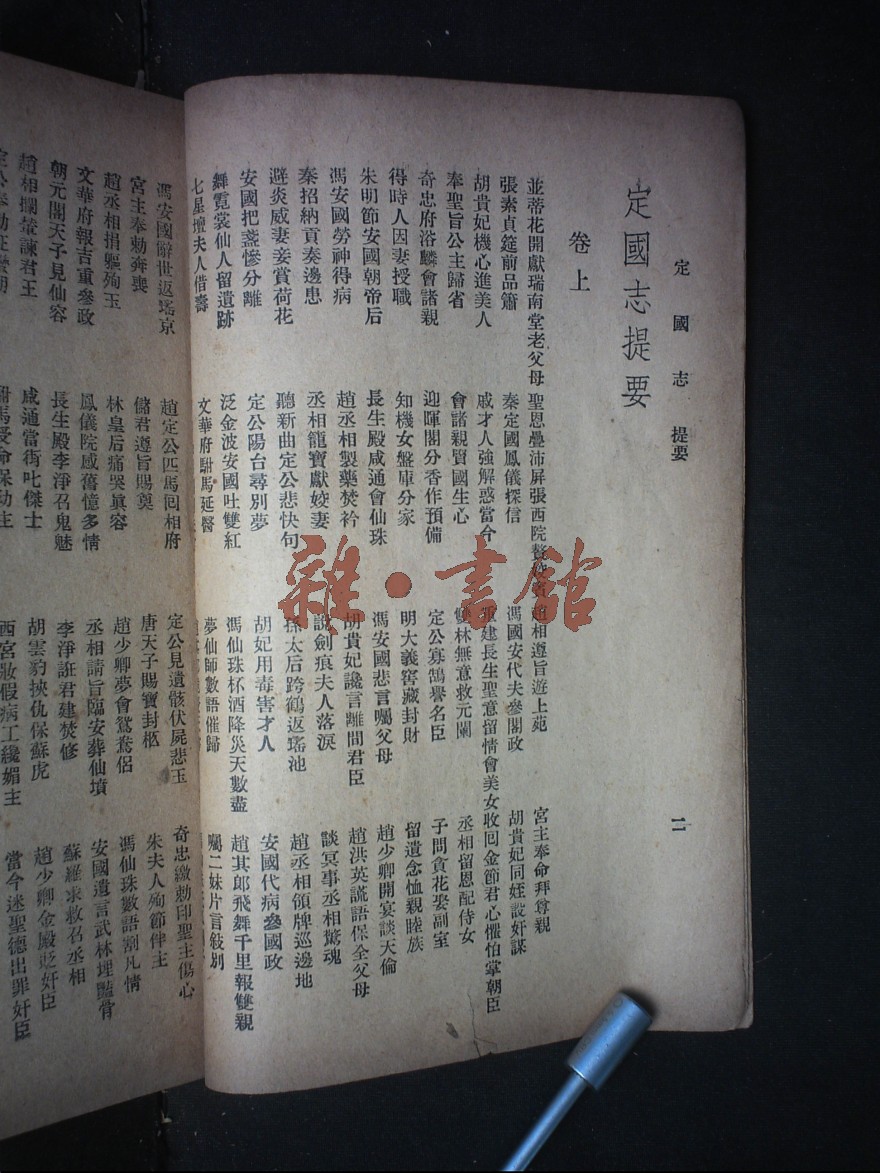 定國志 提要
二
定國志提要
卷上
並蒂花開獻瑞南堂老父母 聖恩疊沛屏張西院 趙相遵旨遊上苑 宮主奉命拜尊親
張素貞筵前品簫 秦定國鳳儀探信 馮國安代夫參閣政 胡貴妃同姪設奸謀
胡貴妃機心進美人 戚才人強解惑當今 重建長生聖意留情會美女 收回金節君心懼怕掌朝臣
奉聖旨公主歸省 會諸親賢國生心 雙林無意救元闈 丞相留恩配侍女
奇忠府洛麟會諸親 迎暉閣分香作預備 定公寡鵠譽名臣 子問貪花娶副室
得時人因妻授職 知機女盤庫分家 明大義窖藏封財 留遺念恤親睦族
朱明節安國朝帝后 長生殿咸通會仙珠 馮安國悲言囑父母 趙少卿開宴談天倫
馮安國勞神得病 趙丞相製藥焚衿 胡貴妃讒言離間君臣 趙洪英謊語保全父母
秦招納貢奏邊患 丞相寵寶獻姣妻 說劍痕夫人落淚 談冥事丞相驚魂
避炎威妻妾賞荷花 聽新曲定公悲快句 孫太后跨鶴返瑤池 趙丞相領牌巡邊地
安國把盞慘分離 定公陽台尋別夢 胡妃用毒害才人 安國代病參國政
舞霓裳仙人留遺跡 泛金波安國吐雙紅 馮仙珠杯酒降災天數盡 趙其郎飛舞千里報雙親
七星壇夫人借壽 文華府駙馬延醫 夢仙師數語催歸 囑二妹片言敍別
馮安國辭世返瑤京 趙定公匹馬回相府 定公見遺骸伏屍悲玉 奇忠繳勅印聖主傷心
宮主奉勅奔喪 儲君遵旨賜奠 唐天子賜寶封柩 朱夫人殉節伴主
趙丞相捐軀殉玉 林皇后痛哭真容 趙少卿夢會鴛鴦侶 馮仙珠數語割凡情
文華府報吉重參政 鳳儀院感舊憶多情 丞相請旨臨安葬仙墳 安國遺言武林埋豔骨
朝元閣天子見仙容 長生殿李淨召鬼魅 李淨誑君建焚修 蘇羅求救召丞相
趙相攔輦諫君王 咸通當街叱傑士 胡雲豹挾仇保蘇虎 趙少卿金殿貶奸臣
定公奉勅征蠻 駙馬受命保幼主 西宮妝假病工纔媚主 當今迷聖德出罪奸臣
雜·書館